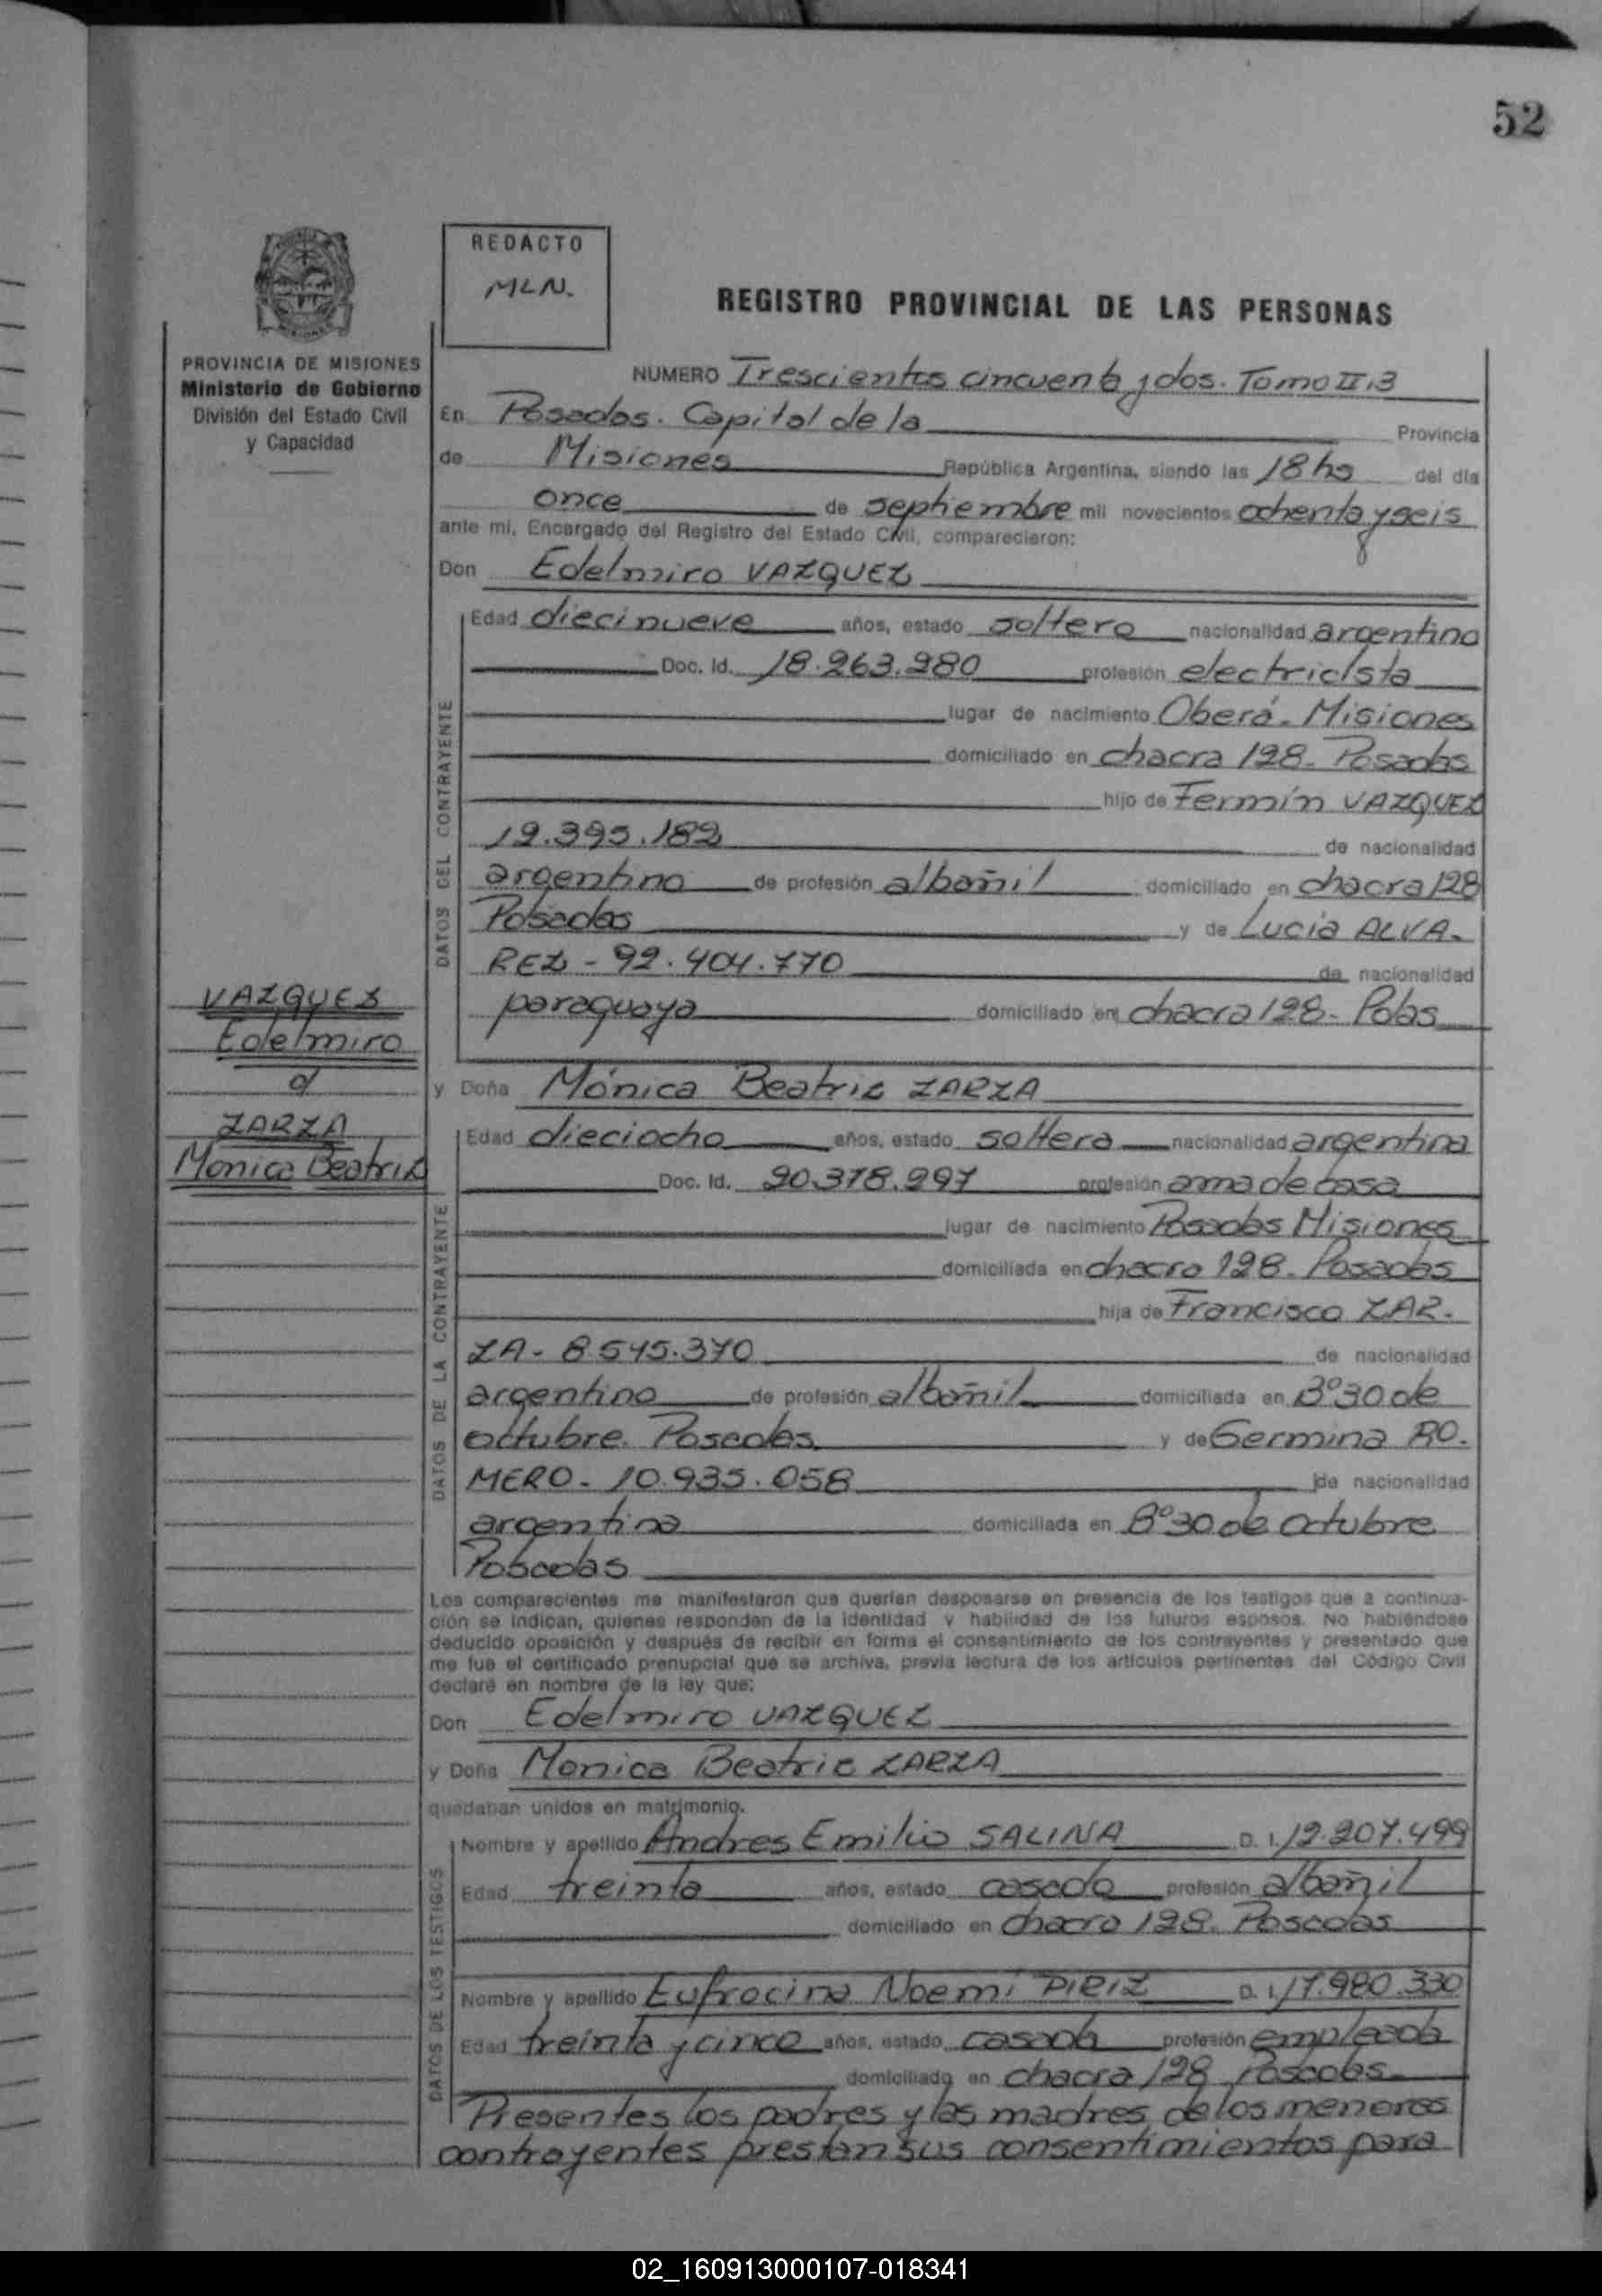 52
REDACTO
MLN.
REGISTRO PROVINCIAL DE LAS PERSONAS
PROVINCIA DE MISIONES
Ministerio de Gobierno
División del Estado Civil
y Capacidad
NUMERO Trescientos cincuenta y dos. Tomo II,3
En Posadas. Capital de la Provincia
de Misiones República Argentina, siendo las 18 hs del día
once de septiembre mil novecientos ochenta y seis
ante mí, Encargado del Registro del Estado Civil, comparecieron:
Don Edelmiro VAZQUEZ
DATOS DEL CONTRAYENTE
Edad diecinueve años, estado soltero nacionalidad argentino
Doc. Id. 18.263.280 profesión electricista
lugar de nacimiento Oberá. Misiones
domiciliado en chacra 128. Posadas
hijo de Fermín VAZQUEZ
12.395.182 de nacionalidad
argentino de profesión albañil domiciliado en chacra 128
Posadas y de Lucia ALVA.
REZ - 92.404.770 de nacionalidad
paraguaya domiciliado en chacra 128. Pdas
VAZQUEZ
Edelmiro
c/
ZARZA
Monica Beatriz
y Doña Mónica Beatriz ZARZA
DATOS DE LA CONTRAYENTE
Edad dieciocho años, estado soltera nacionalidad argentina
Doc. Id. 20.378.297 profesión ama de casa
lugar de nacimiento Posadas Misiones
domiciliada en chacra 128. Posadas
hija de Francisco ZAR.
ZA - 8.545.370 de nacionalidad
argentino de profesión albañil domiciliada en B° 30 de
octubre. Posadas y de Germina RO.
MERO - 10.935.058 de nacionalidad
argentina domiciliada en B° 30 de Octubre
Posadas
Los comparecientes me manifestaron que querían desposarse en presencia de los testigos que a continua-
ción se indican, quienes responden de la identidad y habilidad de los futuros esposos. No habiéndose
deducido oposición y después de recibir en forma el consentimiento de los contrayentes y presentado que
me fue el certificado prenupcial que se archiva, previa lectura de los artículos pertinentes del Código Civil
declaré en nombre de la ley que:
Don Edelmiro VAZQUEZ
y Doña Monica Beatriz ZARZA
quedaban unidos en matrimonio.
DATOS DE LOS TESTIGOS
Nombre y apellido Andres Emilio SALINA D. I. 12.207.499
Edad treinta años, estado casado profesión albañil
domiciliado en chacra 128. Posadas
Nombre y apellido Eufrocina Noemí PIRIZ D. I. 17.980.330
Edad treinta y cinco años, estado casada profesión empleada
domiciliado en chacra 128 Posadas
Presentes los padres y las madres de los menores
contrayentes prestan sus consentimientos para
02_160913000107-018341